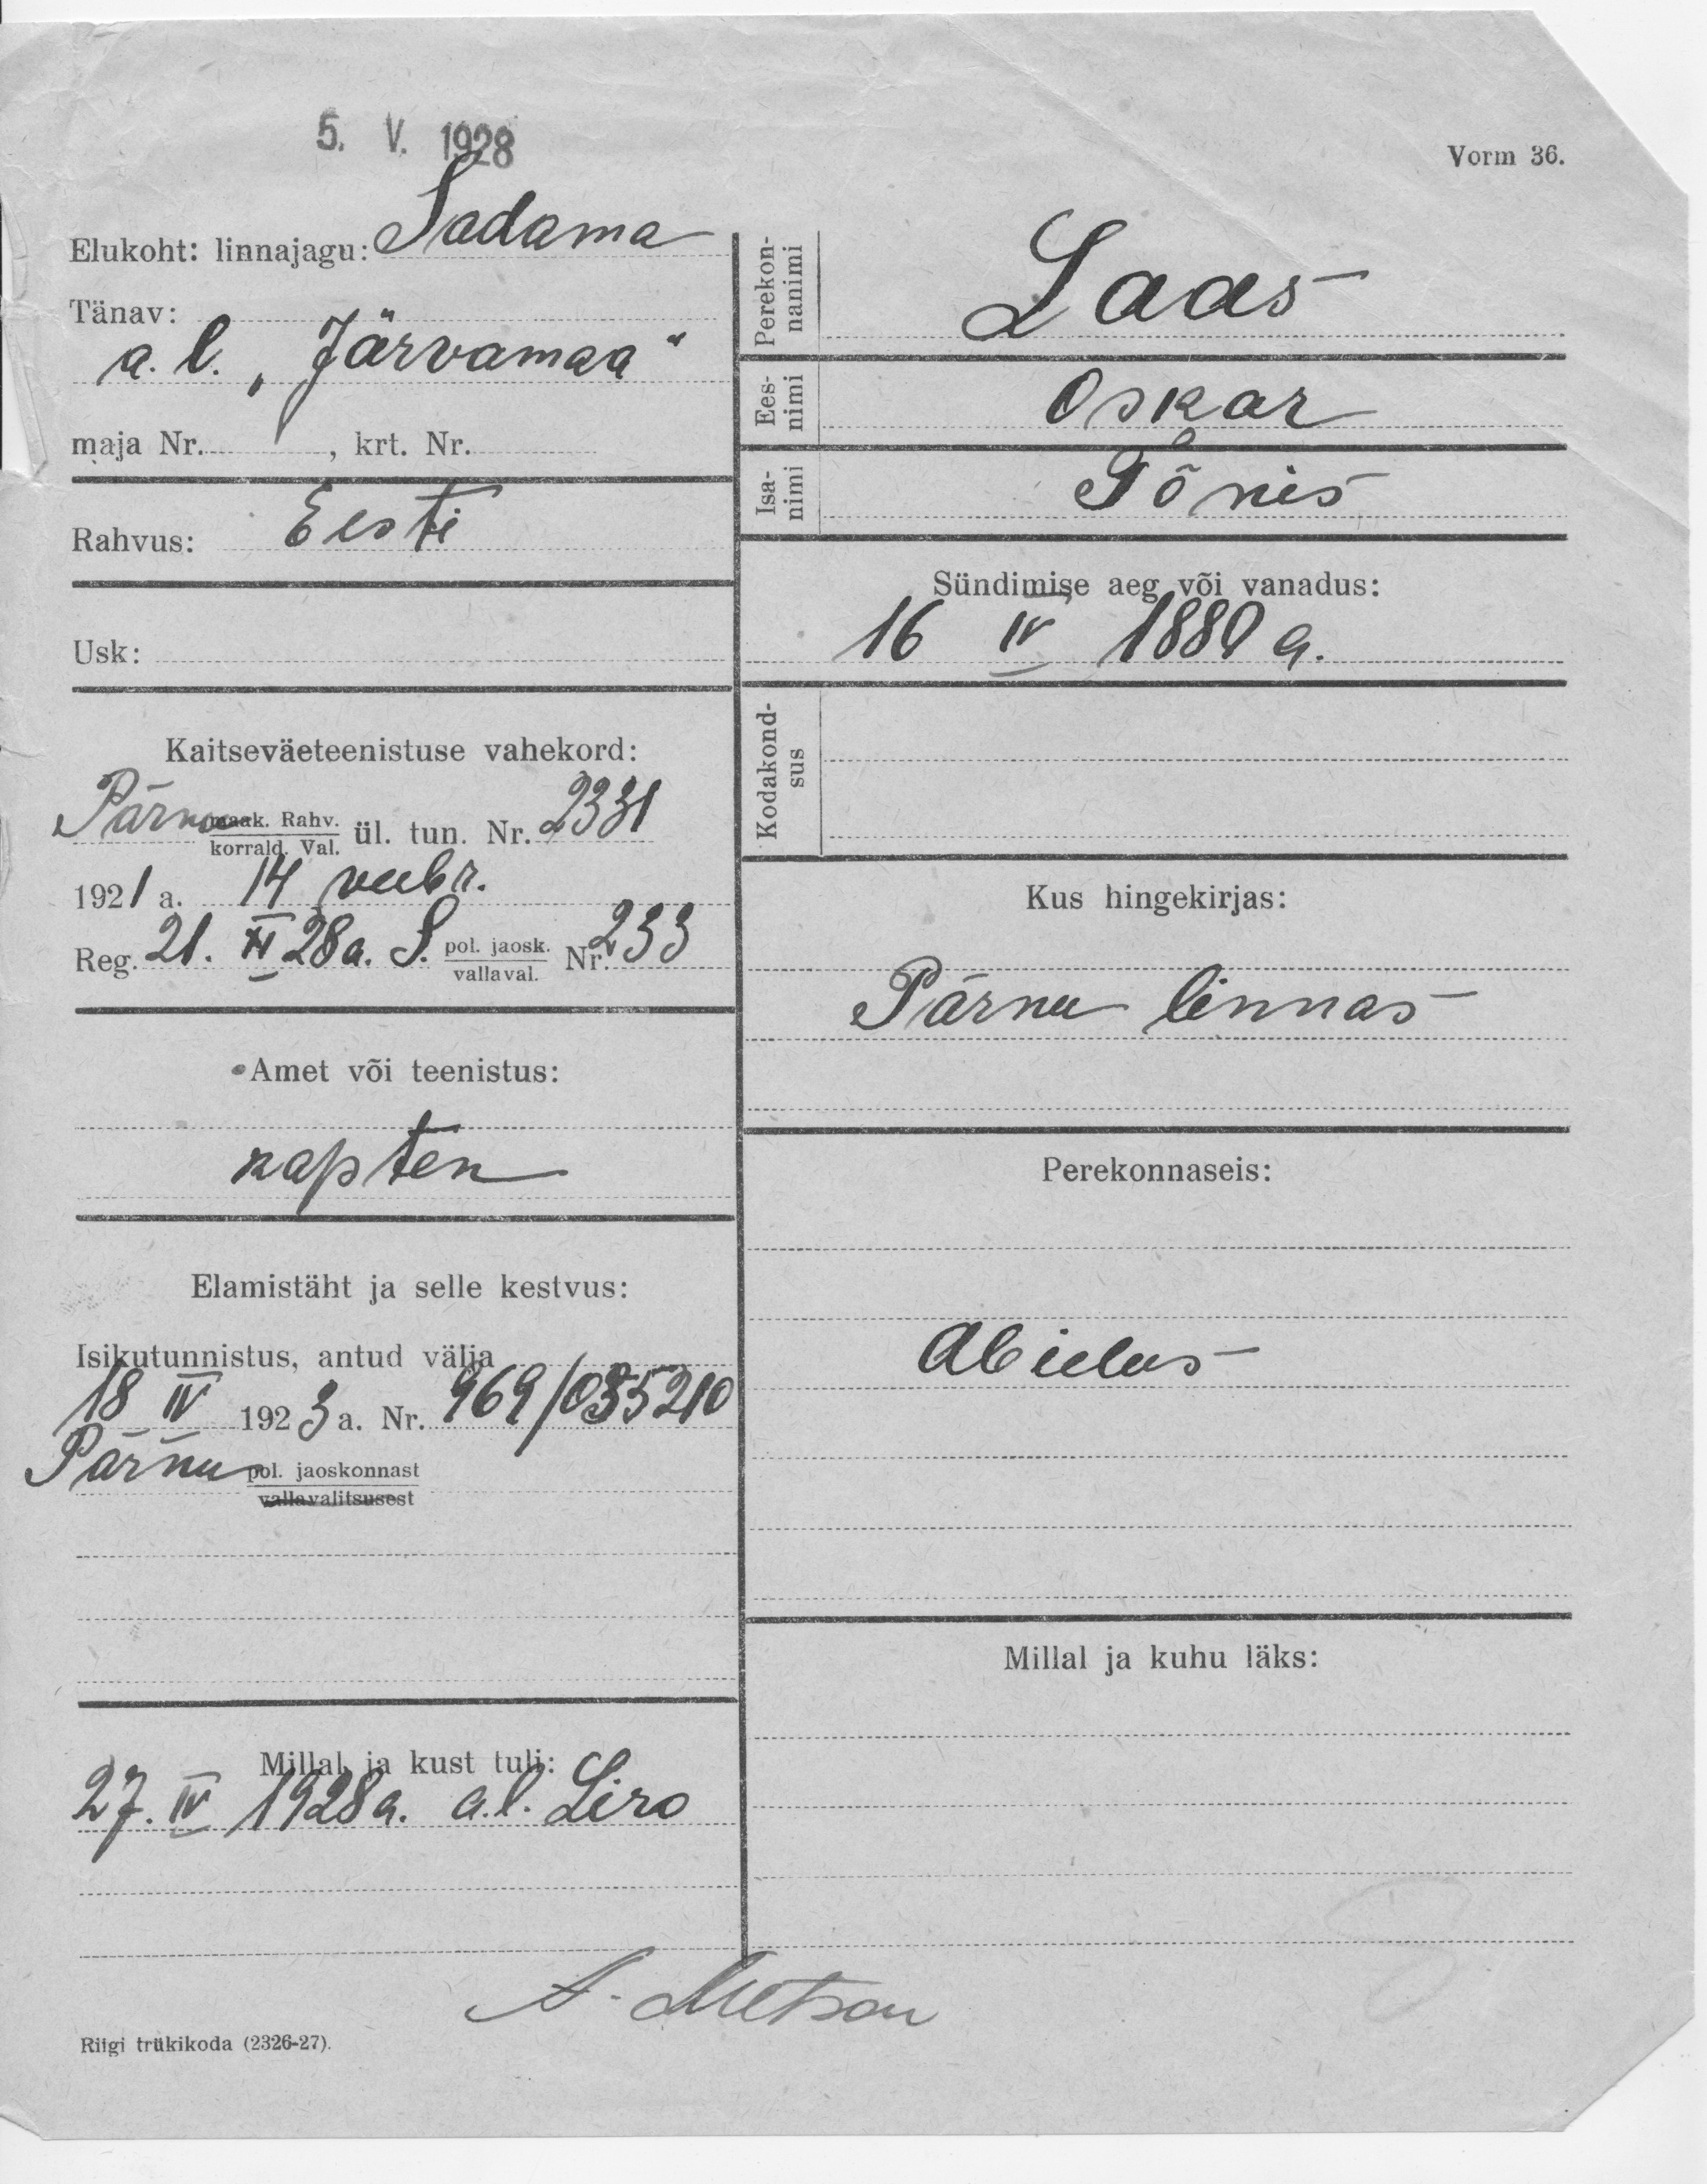 5. V. 1928
Vorm 36.
Elukoht: linnajagu: Sadama
Tänav:
a. l. „Järvamaa“
maja Nr. , krt. Nr.
Rahvus: Eesti
Usk:
Kaitseväeteenistuse vahekord:
Pärnu maak. Rahv. ül. tun. Nr. 2331
korrald. Val.
1921 a. 14 veebr.
Reg. 21. 28 a. S. pol. jaosk. Nr. 233
vallaval.
Amet või teenistus:
kapten
Elamistäht ja selle kestvus:
Isikutunnistus, antud välja
18 IV 1923 a. Nr. 969/035210
Pärnu pol. jaoskonnast
vallavalitsusest
Millal ja kust tuli:
27. IV 1928 a. a.l. Liro
Perekon-
nanimi
Laas
Ees-
nimi
Oskar
Isa-
nimi
Tõnis
Sündimise aeg või vanadus:
16 IV 1880 a.
Kodakond-
sus
Kus hingekirjas:
Pärnu linnas
Perekonnaseis:
Abielus
Millal ja kuhu läks:
A. Metson
Riigi trükikoda (2326-27).